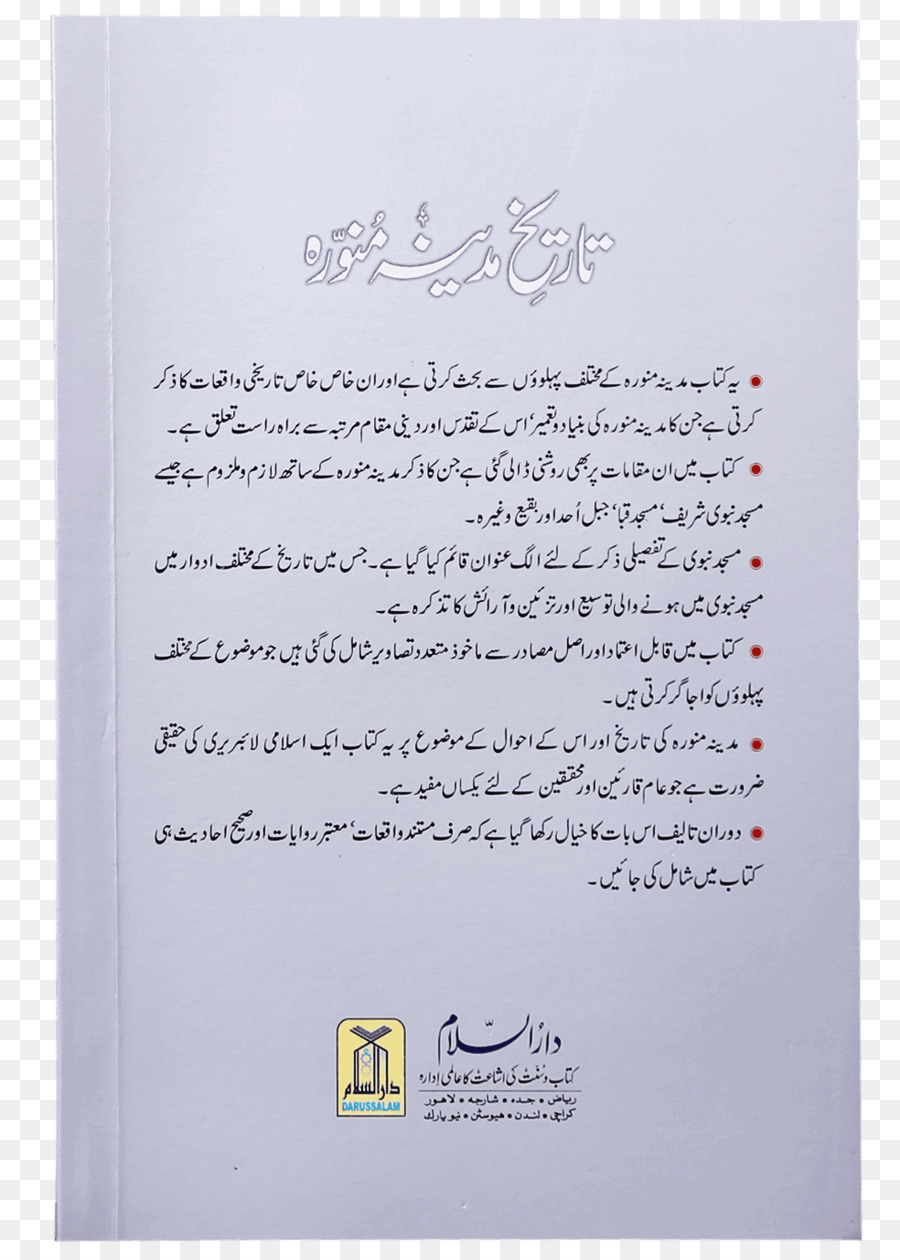 تاریخ مدینہ مُنوّرہ
یہ کتاب مدینہ منورہ کے مختلف پہلوؤں سے بحث کرتی ہے اور ان خاص خاص تاریخی واقعات کا ذکر
کرتی ہے جن کا مدینہ منورہ کی بنیاد و تعمیر‘ اس کے تقدّس اور دینی مقام مرتبہ سے براہ راست تعلق ہے۔
کتاب میں ان مقامات پر بھی روشنی ڈالی گئی ہے جن کا ذکر مدینہ منورہ کے ساتھ لازم و ملزوم ہے جیسے
مسجد نبوی شریف‘ مسجد قبا‘ جبل اُحد اور بقیع وغیرہ۔
مسجد نبوی کے تفصیلی ذکر کے لئے الگ عنوان قائم کیا گیا ہے۔ جس میں تاریخ کے مختلف ادوار میں
مسجد نبوی میں ہونے والی توسیع اور تزئین و آرائش کا تذکرہ ہے۔
کتاب میں قابل اعتماد اور اصل مصادر سے ماخوذ متعدد تصاویر شامل کی گئی ہیں جو موضوع کے مختلف
پہلوؤں کو اجاگر کرتی ہیں۔
مدینہ منورہ کی تاریخ اور اس کے احوال کے موضوع پر یہ کتاب ایک اسلامی لائبریری کی حقیقی
ضرورت ہے جو عام قارئین اور محققین کے لئے یکساں مفید ہے۔
دوران تالیف اس بات کا خیال رکھا گیا ہے کہ صرف مستند واقعات‘ معتبر روایات اور صحیح احادیث ہی
کتاب میں شامل کی جائیں۔
دارُالسّلام
کتاب و سُنّت کی اشاعت کا عالمی ادارہ
ریاض • جدہ • شارجہ • لاہور
کراچی • لندن • ہیوسٹن • نیو یارک
دارالسلام
DARUSSALAM